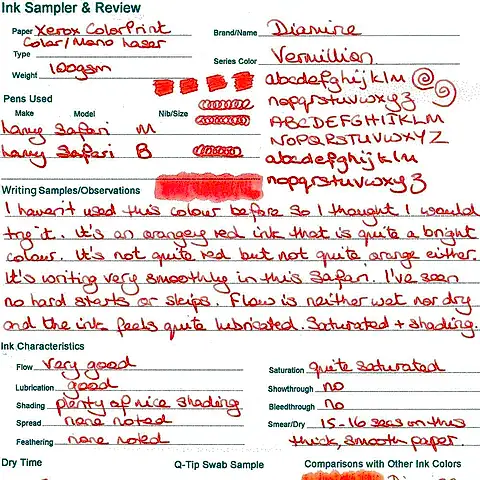 Ink Sampler & Review
Paper Xerox ColorPrint
Color/Mono Laser
Type
Weight 100gsm
Brand/Name Diamine
Series Color Vermillion
abcdefghijklm
nopqrstuvwxyz
ABCDEFGHIJKLM
NOPQRSTUVWXYZ
abcdefghijklm
nopqrstuvwxyz
Pens Used
Make Model Nib/Size
Lamy Safari M
Lamy Safari B
Writing Samples/Observations
I haven't used this colour before so I thought I would
try it. It's an orangey red ink that is quite a bright
colour. It's not quite red but not quite orange either.
It's writing very smoothly in this Safari. I've seen
no hard starts or skips. Flow is neither wet nor dry
and the ink feels quite lubricated. Saturated + shading.
Ink Characteristics
Flow Very good
Lubrication good
Shading plenty of nice shading
Spread none noted
Feathering none noted
Saturation quite saturated
Showthrough no
Bleedthrough no
Smear/Dry 15-16 secs on this
thick, smooth paper.
Dry Time Q-Tip Swab Sample Comparisons with Other Ink Colors